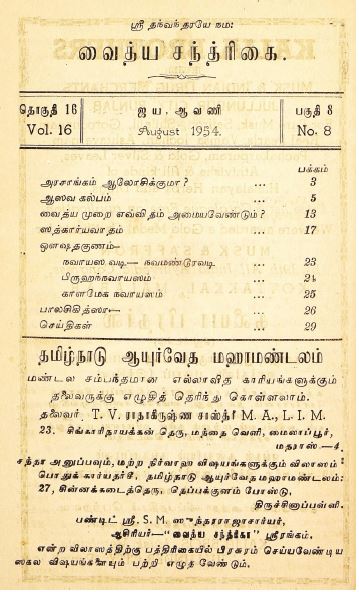 ஸ்ரீ தந்வந்தரயே நம:
வைத்ய சந்த்ரிகை.
தொகுதி 16 ஜய, ஆவணி பகுதி 8
Vol. 16 August 1954. No. 8
பக்கம்
அரசாங்கம் ஆலோசிக்குமா? ... 3
ஆஸவ கல்பம் ... 5
வைத்ய முறை எவ்விதம் அமையவேண்டும்? ... 13
ஸத்கார்யவாதம் ... 17
ஔஷதகுணம்—
நவாயஸ வடி— நவமண்டூரவடி ... 23
பிருஹந்நவாயஸம் ... 24
காளமேக நவாயஸம் ... 25
பாலசிகித்ஸா— ... 26
செய்திகள் ... 29
தமிழ்நாடு ஆயுர்வேத மஹாமண்டலம்
மண்டல சம்பந்தமான எல்லாவித காரியங்களுக்கும்
தலைவருக்கு எழுதித் தெரிந்து கொள்ளலாம்.
தலைவர்: T. V. ராதாகிருஷ்ண சாஸ்திரி M. A., L. I. M.
23, சிங்காரிநாயக்கன் தெரு, மந்தை வெளி, மைலாப்பூர்,
மதராஸ்—4.
சந்தா அனுப்பவும், மற்ற நிர்வாஹ விஷயங்களுக்கும் விலாஸம்:
பொதுக் கார்யதர்சி, தமிழ்நாடு ஆயுர்வேத மஹாமண்டலம்:
27, சின்னக்கடைத்தெரு, தெப்பக்குளம் போஸ்டு,
திருச்சினாப்பள்ளி.
பண்டிட் ஸ்ரீ. S. M. ஸுந்தரராஜாசார்யர்,
ஆசிரியர்—"வைத்ய சந்த்ரிகா" ஸ்ரீரங்கம்.
என்ற விலாஸத்திற்கு பத்திரிகையில் பிரசுரம் செய்யவேண்டிய
ஸகல விஷயங்களையும் பற்றி எழுத வேண்டும்.